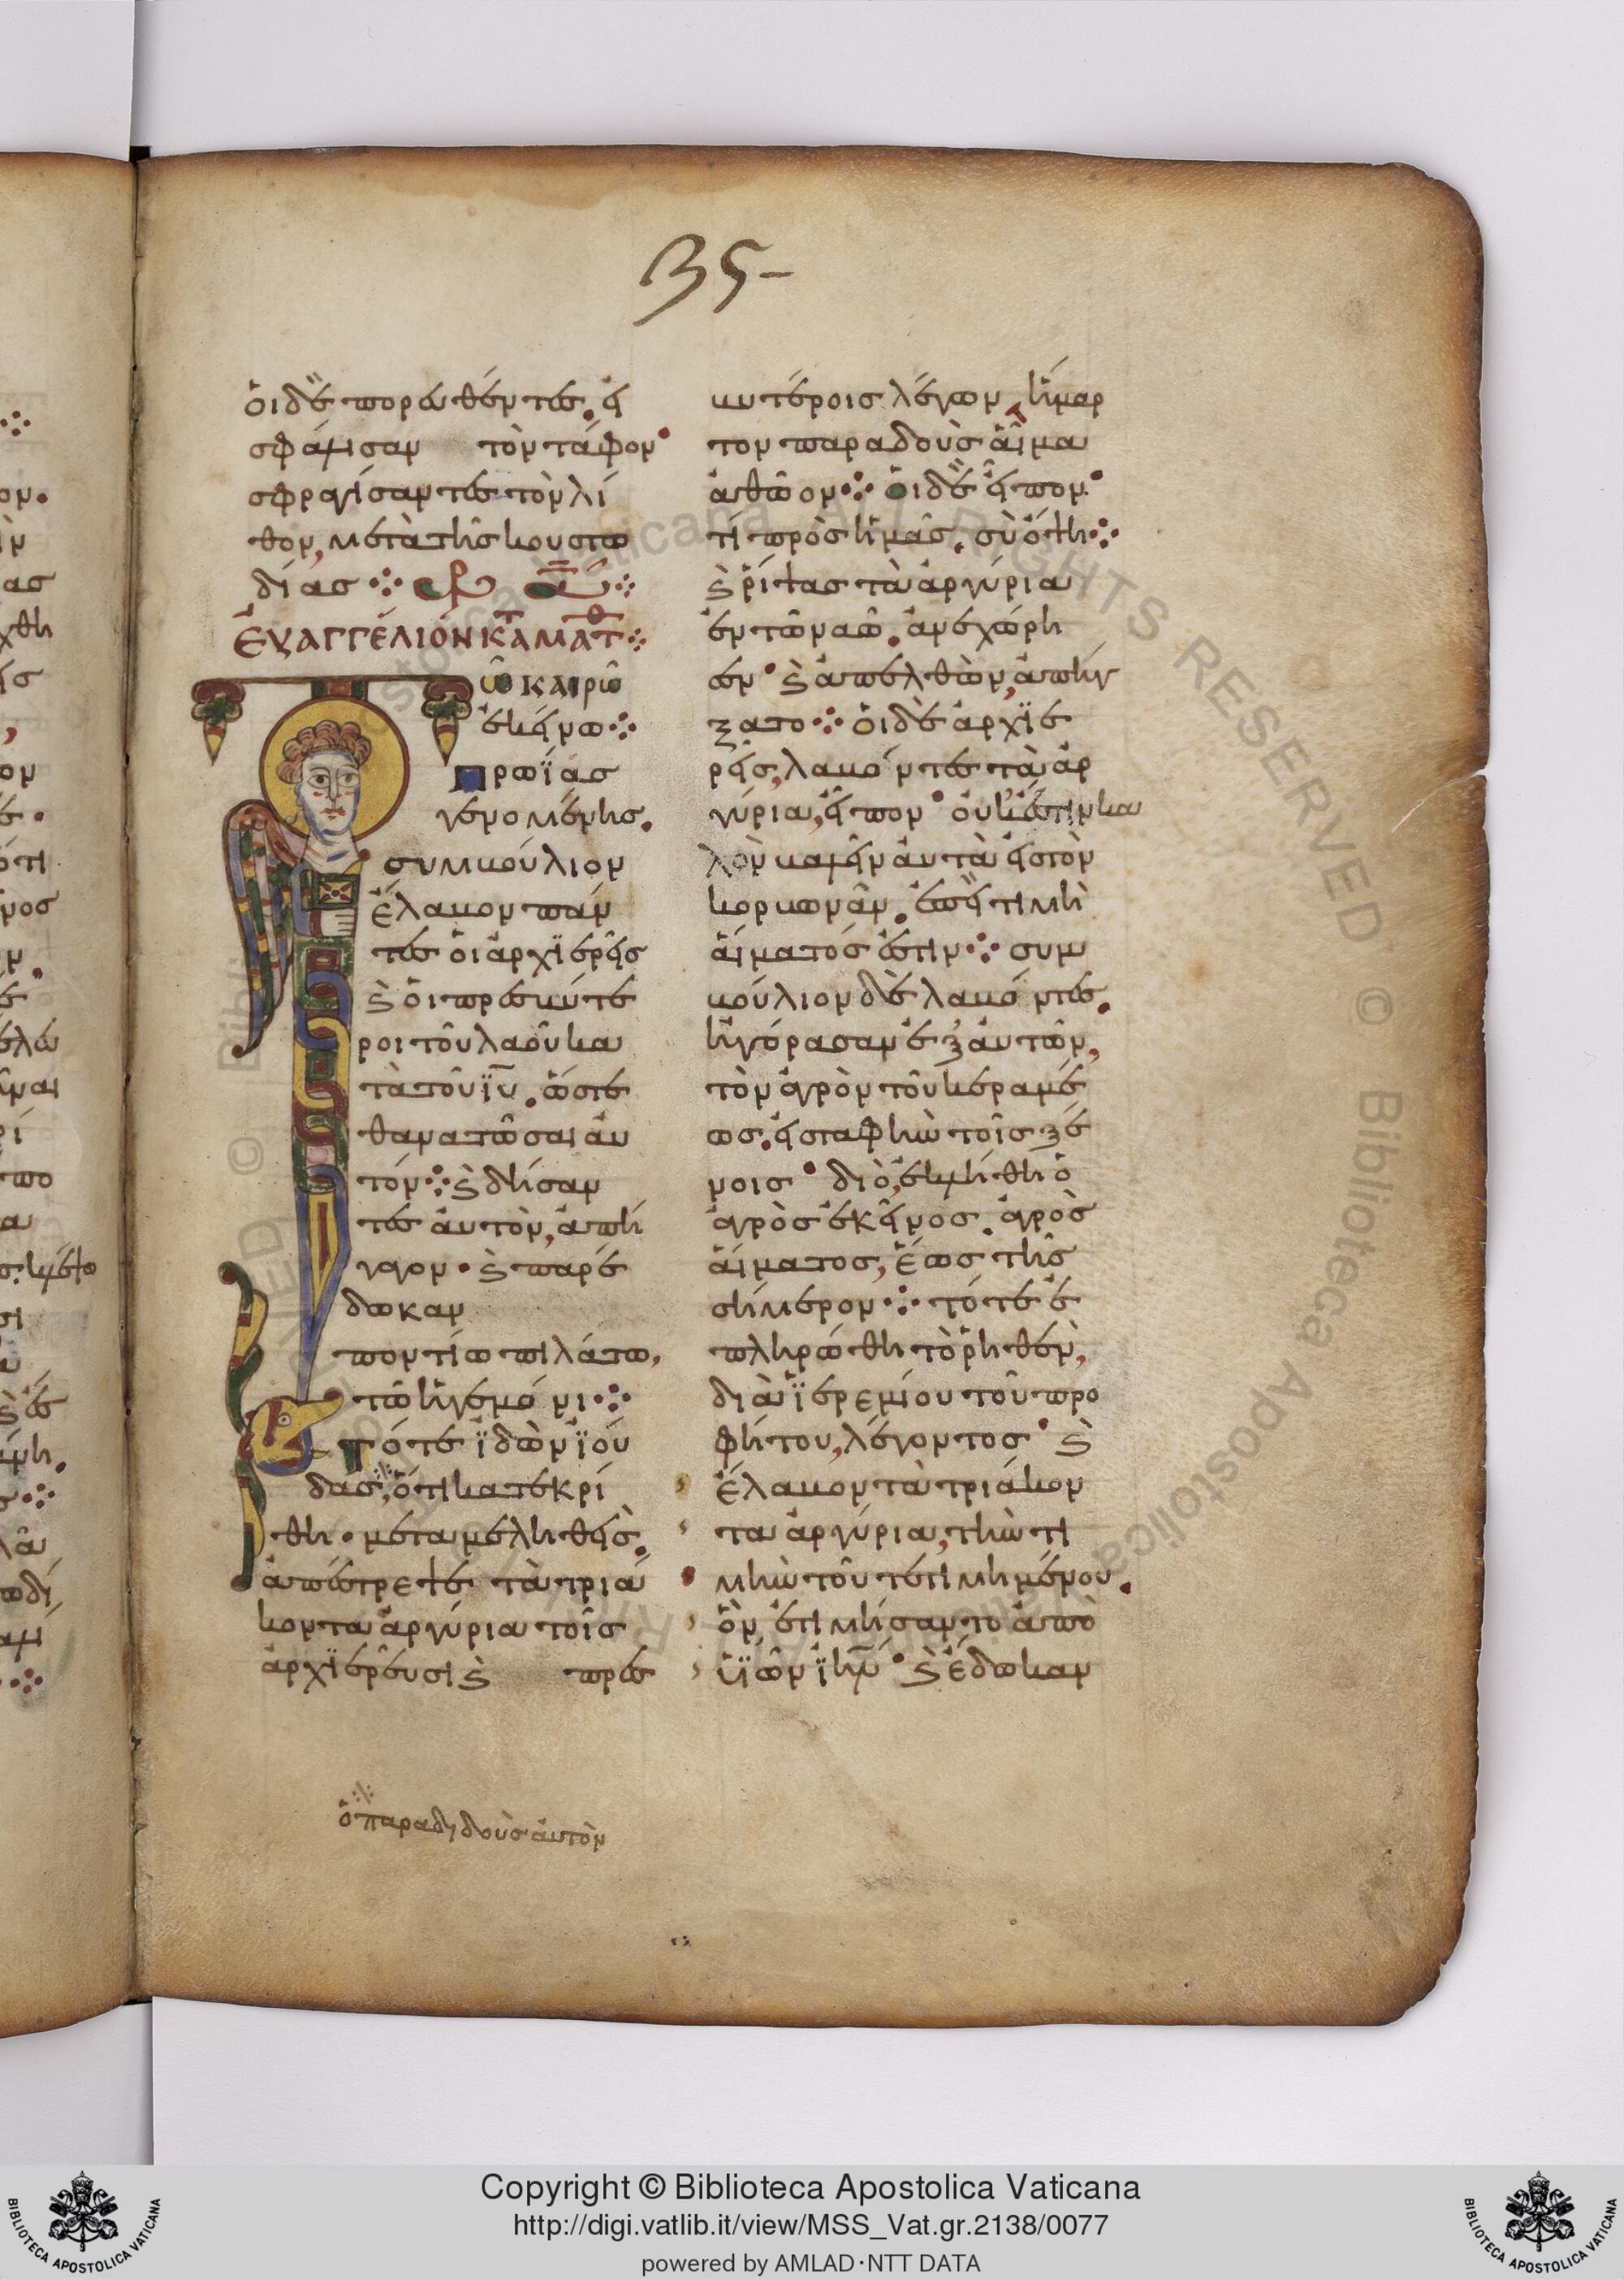 35-
ὁι δὲ πορευθέντες, ἠ
σφάλισαν τὸν τάφον
σφραγίσαντες τὸν λί
θον, μετὰ τῆς κουστω
δίας
ἐυαγγέλιον κτ ματθ
ῶ καιρῶ
ἐκείνω
πρωϊας
γενομένης.
συμβούλιον
ἔλαβον πάν
τες ὁι ἀρχϊερεῖς
ϗ ὁι πρεσβύτε
ροι τοῦ λαοῦ κα
τὰ τοῦ ϊυ. ὥστε
θανατῶσαι ἀυ
τόν ϗ δήσαν
τες ἀυτὸν, ἀπή
γαγον. ϗ παρέ
δωκαν
ποντίω πιλάτω,
τῶ ἡγεμόνι
τότε ϊδὼν ϊού
δας, ὅτι κατεκρί
θη. μεταμεληθεὶς.
ἀπέστρεψε τὰ τριά
κοντα ἀργύρια τοῖς
ἀρχϊερεῦσι ϗ πρεσ
ὁ παραδιδοὺς ἀυτὸν
βυτέροις λέγων, ἥμαρ
τον παραδοὺς ἇιμα
ἀθῶον ὁι δὲ εἶπον
τί πρὸς ἡμᾶς. σὺ ὄψη
ϗ ῥίψας τὰ ἀργύρια
ἐν τῶ ναῶ. ἀνεχώρη
σεν ϗ ἀπελθὼν, ἀπήγ
ξατο ὁι δὲ ἀρχϊε
ρεῖς, λαβόντες τὰ ἀρ
γύρια, εἶπον ὀυκ ἔστιν κα
λὸν βαλεῖν ἀυτὰ εἰς τὸν
κορβωνᾶν. ἐπεὶ τιμὴ
ἅιματός ἐστιν συμ
βούλιον δὲ λαβόντες.
ἠγόρασαν ἐξ ἀυτῶν,
τὸν ἀγρὸν τοῦ κεραμέ
ως. εἰς ταφὴν τοῖς ξέ
νοις διὸ, ἐκλήθη ὁ
ἀγρὸς ἐκεῖνος. ἀγρὸς
ἅιματος, ἕως τῆς
σήμερον τότε ἐ
πληρώθη τὸ ῥηθὲν,
διὰ ϊερεμίου τοῦ προ
φήτου, λέγοντος ϗ
ἔλαβον τὰ τριάκον
τα ἀργύρια, τὴν τι
μὴν τοῦ τετιμημένου.
ὃν ἐτιμήσαντο ἀπὸ
ϋϊῶν ϊηλ ϗ ἔδωκαν
Copyright © Biblioteca Apostolica Vaticana
http://digi.vatlib.it/view/MSS_Vat.gr.2138/0077
powered by AMLAD·NTT DATA
BIBLIOTECA APOSTOLICA VATICANA
BIBLIOTECA APOSTOLICA VATICANA